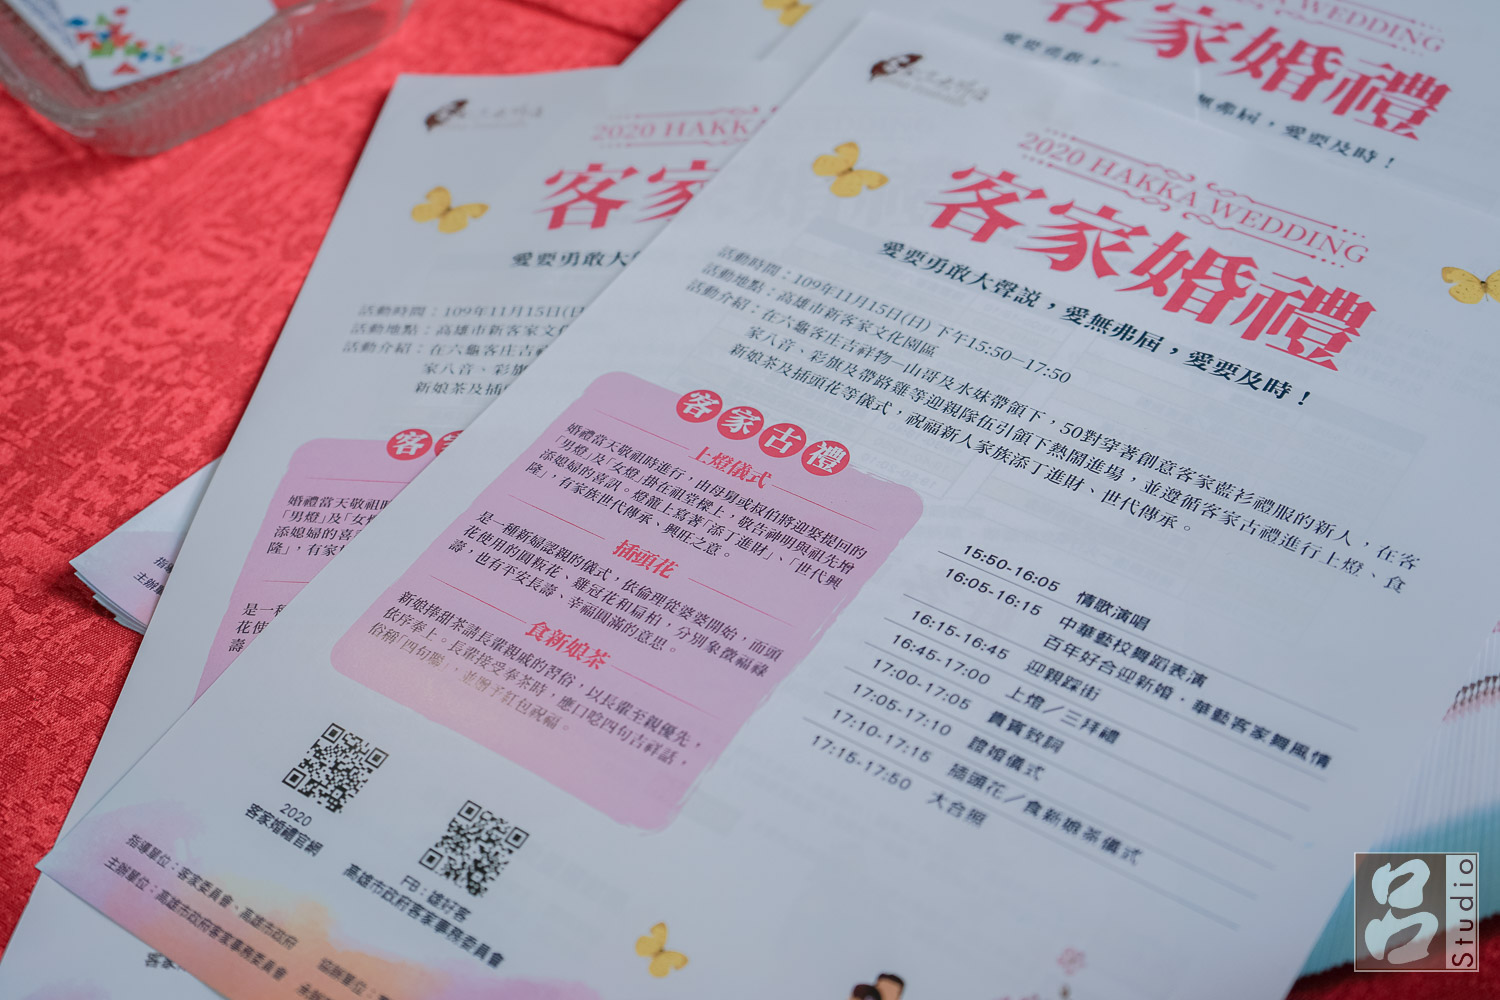 2020 HAKKA WEDDING
客家婚禮
愛要勇敢大聲說，愛無弗屆，愛要及時！
活動時間：109年11月15日(日) 下午15:50—17:50
活動地點：高雄市新客家文化園區
活動介紹：在六龜客庄吉祥物—山哥及水妹帶領下，50對穿著創意客家藍衫禮服的新人，在客
家八音、彩旗及帶路雞等迎親隊伍引領下熱鬧進場，並遵循客家古禮進行上燈、食
新娘茶及插頭花等儀式，祝福新人家族添丁進財、世代傳承。
客家古禮
上燈儀式
婚禮當天敬祖時進行，由母舅或叔伯將迎娶提回的
「男燈」及「女燈」掛在祖堂樑上，敬告神明與祖先增
添媳婦的喜訊。燈籠上寫著「添丁進財」、「世代興
隆」，有家族世代傳承、興旺之意。
插頭花
是一種新婦認親的儀式，依倫理從婆婆開始，而頭
花使用的圓粄花、雞冠花和扁柏，分別象徵福祿
壽，也有平安長壽、幸福圓滿的意思。
食新娘茶
新娘捧甜茶請長輩親戚的習俗，以長輩至親優先，
依序奉上。長輩接受奉茶時，應口唸四句吉祥話，
俗稱「四句聯」，並贈予紅包祝福。
15:50-16:05 情歌演唱
16:05-16:15 中華藝校舞蹈表演
百年好合迎新婚．華藝客家舞風情
16:15-16:45 迎親踩街
16:45-17:00 上燈／三拜禮
17:00-17:05 貴賓致詞
17:05-17:10 證婚儀式
17:10-17:15 插頭花／食新娘茶儀式
17:15-17:50 大合照
2020
客家婚禮官網
FB：雄好客
高雄市政府客家事務委員會
指導單位：客家委員會、高雄市政府
主辦單位：高雄市政府客家事務委員會
協辦單位：
2020 HAKKA
客家
愛要勇敢大
活動時間：109年11月15日(日
活動地點：高雄市新客家文化
活動介紹：在六龜客庄吉祥
家八音、彩旗
新娘茶及插
客家
婚禮當天敬祖
「男燈」及「女
添媳婦的喜
隆」，有家
是一種
花使
壽
指導
主辦
WEDDING
客家婚禮
愛要勇敢
無弗屆，愛要及時！
呂 Studio